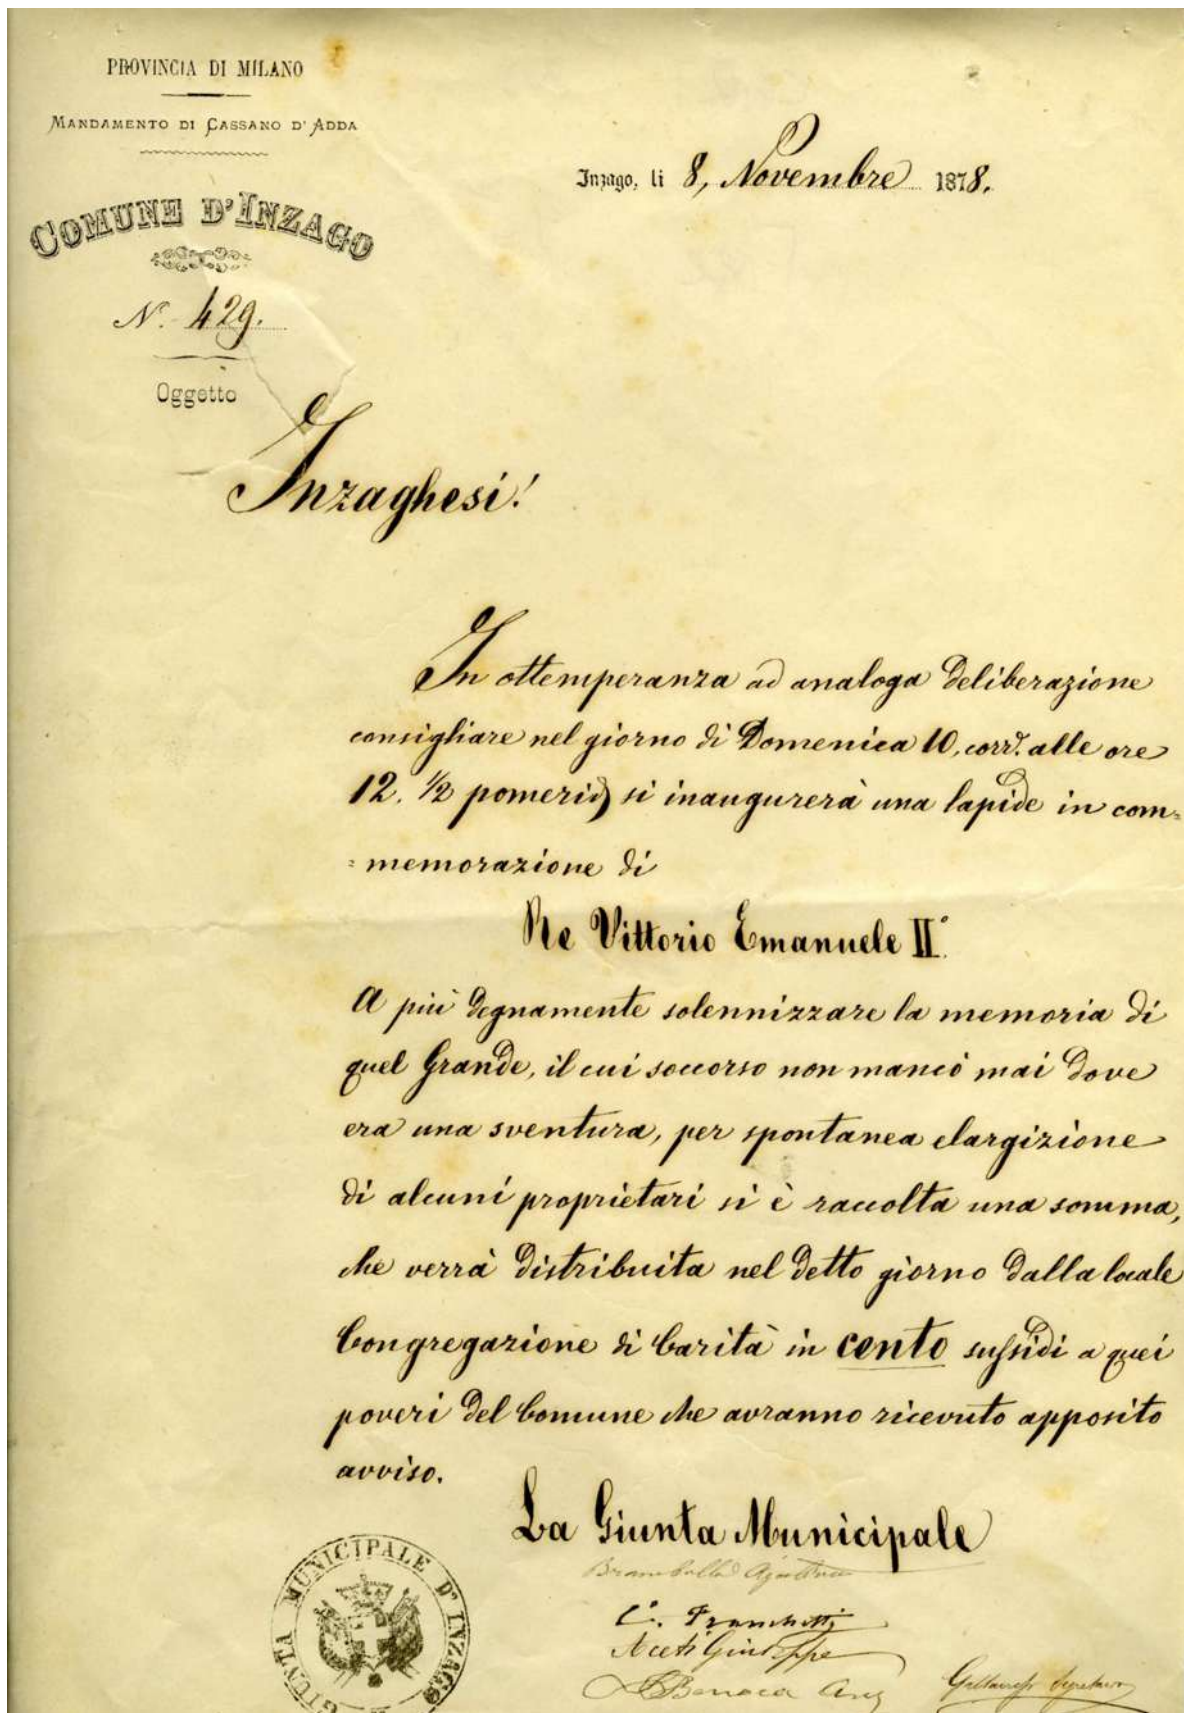 PROVINCIA DI MILANO
MANDAMENTO DI CASSANO D'ADDA
COMUNE D'INZAGO
N. 429.
Oggetto
Inzago, li 8, Novembre 1878.
Inzaghesi!
In ottemperanza ad analoga deliberazione
consigliare nel giorno di Domenica 10, corr. alle ore
12. 1/2 pomerid si inaugurerà una lapide in com=
=memorazione di
Re Vittorio Emanuele II°.
A più degnamente solennizzare la memoria di
quel Grande, il cui soccorso non mancò mai dove
era una sventura, per spontanea elargizione
di alcuni proprietari si è raccolta una somma,
che verrà distribuita nel detto giorno dalla locale
Congregazione di Carità in cento sussidi a quei
poveri del Comune che avranno ricevuto apposito
avviso.
La Giunta Municipale
GIUNTA MUNICIPALE D'INZAGO
C. Franchetti
Aceti Giuseppe